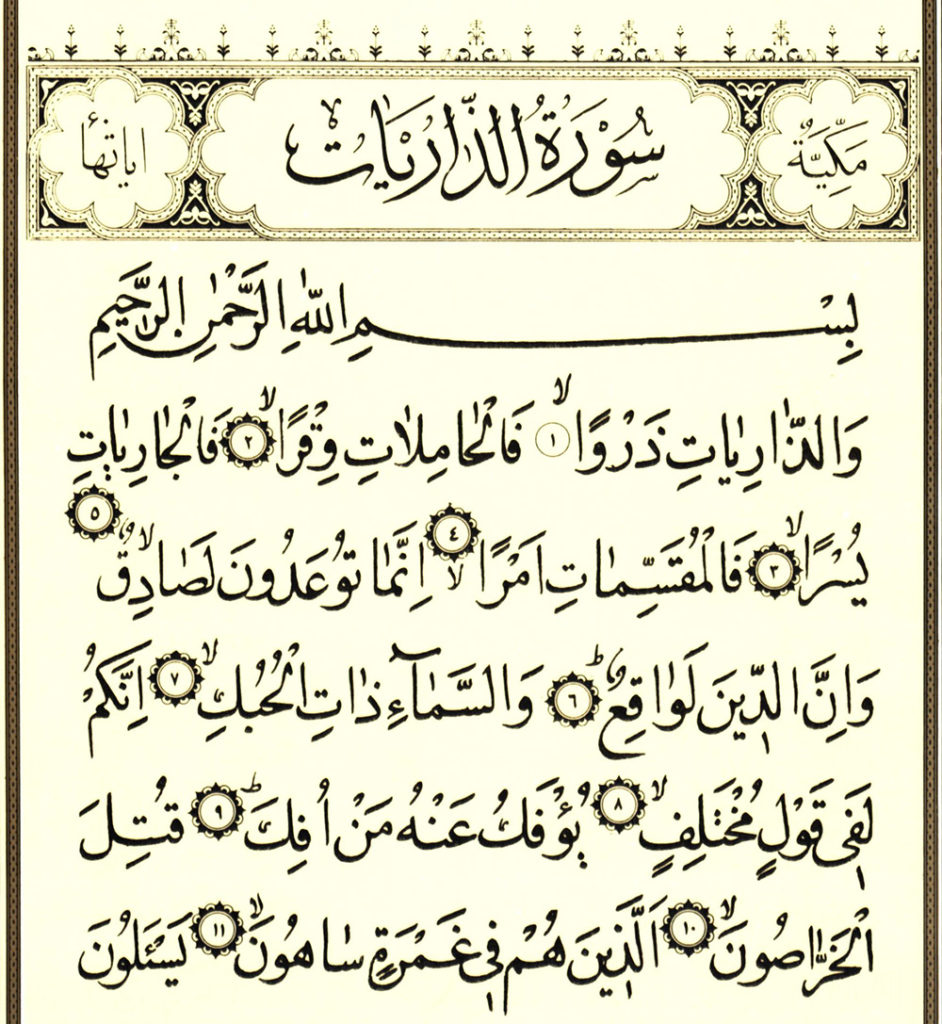 مَكِّيَّةٌ سُوْرَةُ الذَّارِيَاتِ اياتها
بِسْمِ اللّٰهِ الرَّحْمٰنِ الرَّحٖيمِ
وَالذَّارِيَاتِ ذَرْوًاۙ ١ فَالْحَامِلَاتِ وِقْرًاۙ ٢ فَالْجَارِيَاتِ
يُسْرًاۙ ٣ فَالْمُقَسِّمَاتِ اَمْرًاۙ ٤ اِنَّمَا تُوعَدُونَ لَصَادِقٌۙ ٥
وَاِنَّ الدّٖينَ لَوَاقِعٌؕ ٦ وَالسَّمَٓاءِ ذَاتِ الْحُبُكِۙ ٧ اِنَّكُمْ
لَفٖى قَوْلٍ مُخْتَلِفٍۙ ٨ يُؤْفَكُ عَنْهُ مَنْ اُفِكَؕ ٩ قُتِلَ
الْخَرَّاصُونَۙ ١٠ اَلَّذٖينَ هُمْ فٖى غَمْرَةٍ سَاهُونَۙ ١١ يَسْـَٔلُونَ